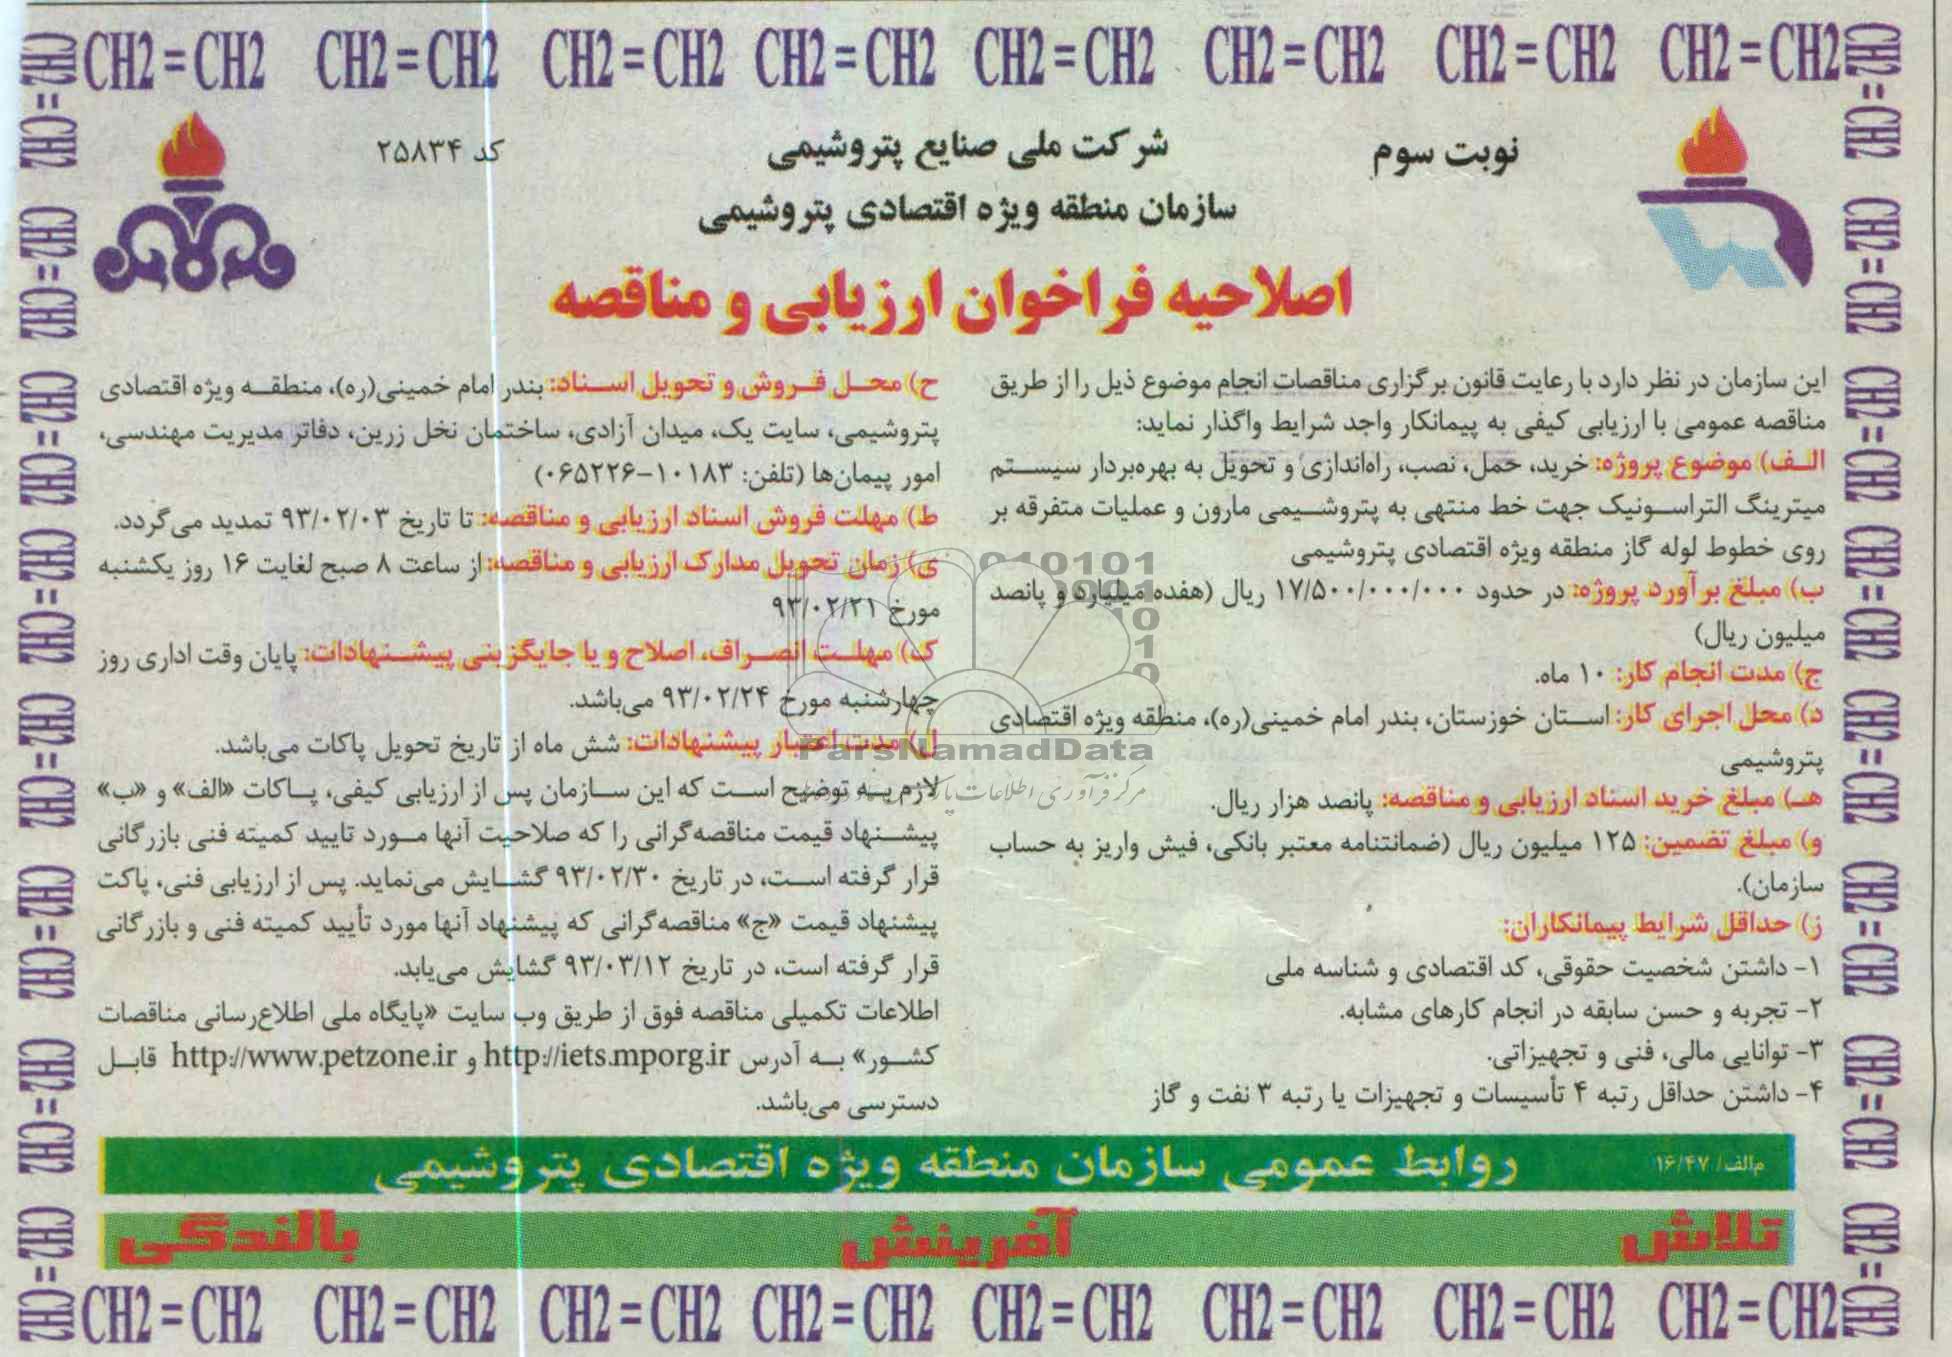 CH2=CH2 CH2=CH2 CH2=CH2 CH2=CH2 CH2=CH2 CH2=CH2 CH2=CH2 CH2=CH2
نوبت سوم
شرکت ملی صنایع پتروشیمی
کد ۲۵۸۳۴
سازمان منطقه ویژه اقتصادی پتروشیمی
اصلاحیه فراخوان ارزیابی و مناقصه
این سازمان در نظر دارد با رعایت قانون برگزاری مناقصات انجام موضوع ذیل را از طریق
مناقصه عمومی با ارزیابی کیفی به پیمانکار واجد شرایط واگذار نماید:
الف) موضوع پروژه: خرید، حمل، نصب، راه‌اندازی و تحویل به بهره‌بردار سیستم
میترینگ التراسونیک جهت خط منتهی به پتروشیمی مارون و عملیات متفرقه بر
روی خطوط لوله گاز منطقه ویژه اقتصادی پتروشیمی
ب) مبلغ برآورد پروژه: در حدود ۱۷/۵۰۰/۰۰۰/۰۰۰ ریال (هفده میلیارد و پانصد
میلیون ریال)
ج) مدت انجام کار: ۱۰ ماه.
د) محل اجرای کار: استان خوزستان، بندر امام خمینی(ره)، منطقه ویژه اقتصادی
پتروشیمی
هـ) مبلغ خرید اسناد ارزیابی و مناقصه: پانصد هزار ریال.
و) مبلغ تضمین: ۱۲۵ میلیون ریال (ضمانتنامه معتبر بانکی، فیش واریز به حساب
سازمان).
ز) حداقل شرایط پیمانکاران:
۱- داشتن شخصیت حقوقی، کد اقتصادی و شناسه ملی
۲- تجربه و حسن سابقه در انجام کارهای مشابه.
۳- توانایی مالی، فنی و تجهیزاتی.
۴- داشتن حداقل رتبه ۴ تأسیسات و تجهیزات یا رتبه ۳ نفت و گاز
ح) محل فروش و تحویل اسناد: بندر امام خمینی(ره)، منطقه ویژه اقتصادی
پتروشیمی، سایت یک، میدان آزادی، ساختمان نخل زرین، دفاتر مدیریت مهندسی،
امور پیمان‌ها (تلفن: ۱۰۱۸۳-۰۶۵۲۲۶)
ط) مهلت فروش اسناد ارزیابی و مناقصه: تا تاریخ ۹۳/۰۲/۰۳ تمدید می‌گردد.
ی) زمان تحویل مدارک ارزیابی و مناقصه: از ساعت ۸ صبح لغایت ۱۶ روز یکشنبه
مورخ ۹۳/۰۲/۲۱
ک) مهلت انصراف، اصلاح و یا جایگزینی پیشنهادات: پایان وقت اداری روز
چهارشنبه مورخ ۹۳/۰۲/۲۴ می‌باشد.
ل) مدت اعتبار پیشنهادات: شش ماه از تاریخ تحویل پاکات می‌باشد.
لازم به توضیح است که این سازمان پس از ارزیابی کیفی، پاکات «الف» و «ب»
پیشنهاد قیمت مناقصه‌گرانی را که صلاحیت آنها مورد تایید کمیته فنی بازرگانی
قرار گرفته است، در تاریخ ۹۳/۰۲/۳۰ گشایش می‌نماید. پس از ارزیابی فنی، پاکت
پیشنهاد قیمت «ج» مناقصه‌گرانی که پیشنهاد آنها مورد تأیید کمیته فنی و بازرگانی
قرار گرفته است، در تاریخ ۹۳/۰۳/۱۲ گشایش می‌یابد.
اطلاعات تکمیلی مناقصه فوق از طریق وب سایت «پایگاه ملی اطلاع‌رسانی مناقصات
کشور» به آدرس http://iets.mporg.ir و http://www.petzone.ir قابل
دسترسی می‌باشد.
ParsNamadData
م‌الف/ ۱۶/۴۷
روابط عمومی سازمان منطقه ویژه اقتصادی پتروشیمی
تلاش آفرینش بالندگی
CH2=CH2 CH2=CH2 CH2=CH2 CH2=CH2 CH2=CH2 CH2=CH2 CH2=CH2 CH2=CH2